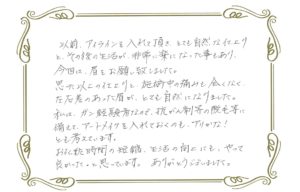 以前、アイラインを入れて頂き、とても自然な仕上り
と、その後の生活が、非常に楽になった事もあり、
今回は、眉をお願い致しました。
思った以上の仕上りと、施術中の痛みも全くなく、
左右差のあった眉が、とても自然になりました。
私は、ガン経験者なので、抗がん剤等の脱毛等に
備えて、アートメイクを入れておくのも、アリかな!
とも考えています。
お化粧時間の短縮、生活の向上にも、やって
良かったっと思っています。ありがとうございました。